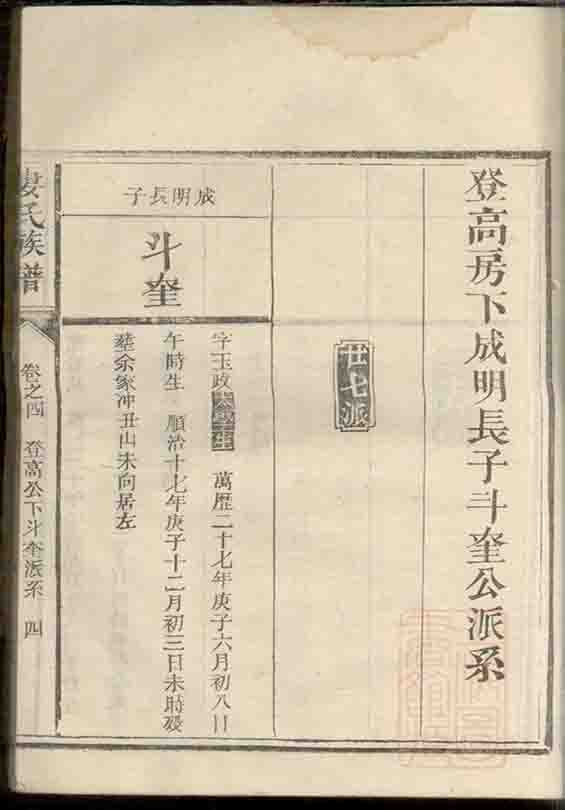 登高房下成明長子斗奎公派系
廿七派
成明長子
斗奎
字玉政太學生 萬歷二十七年庚子六月初八日
午時生 順治十七年庚子十二月初三日未時歿
塟余家冲丑山未向居左
氏族譜
卷之四 登高公下斗奎派系 四